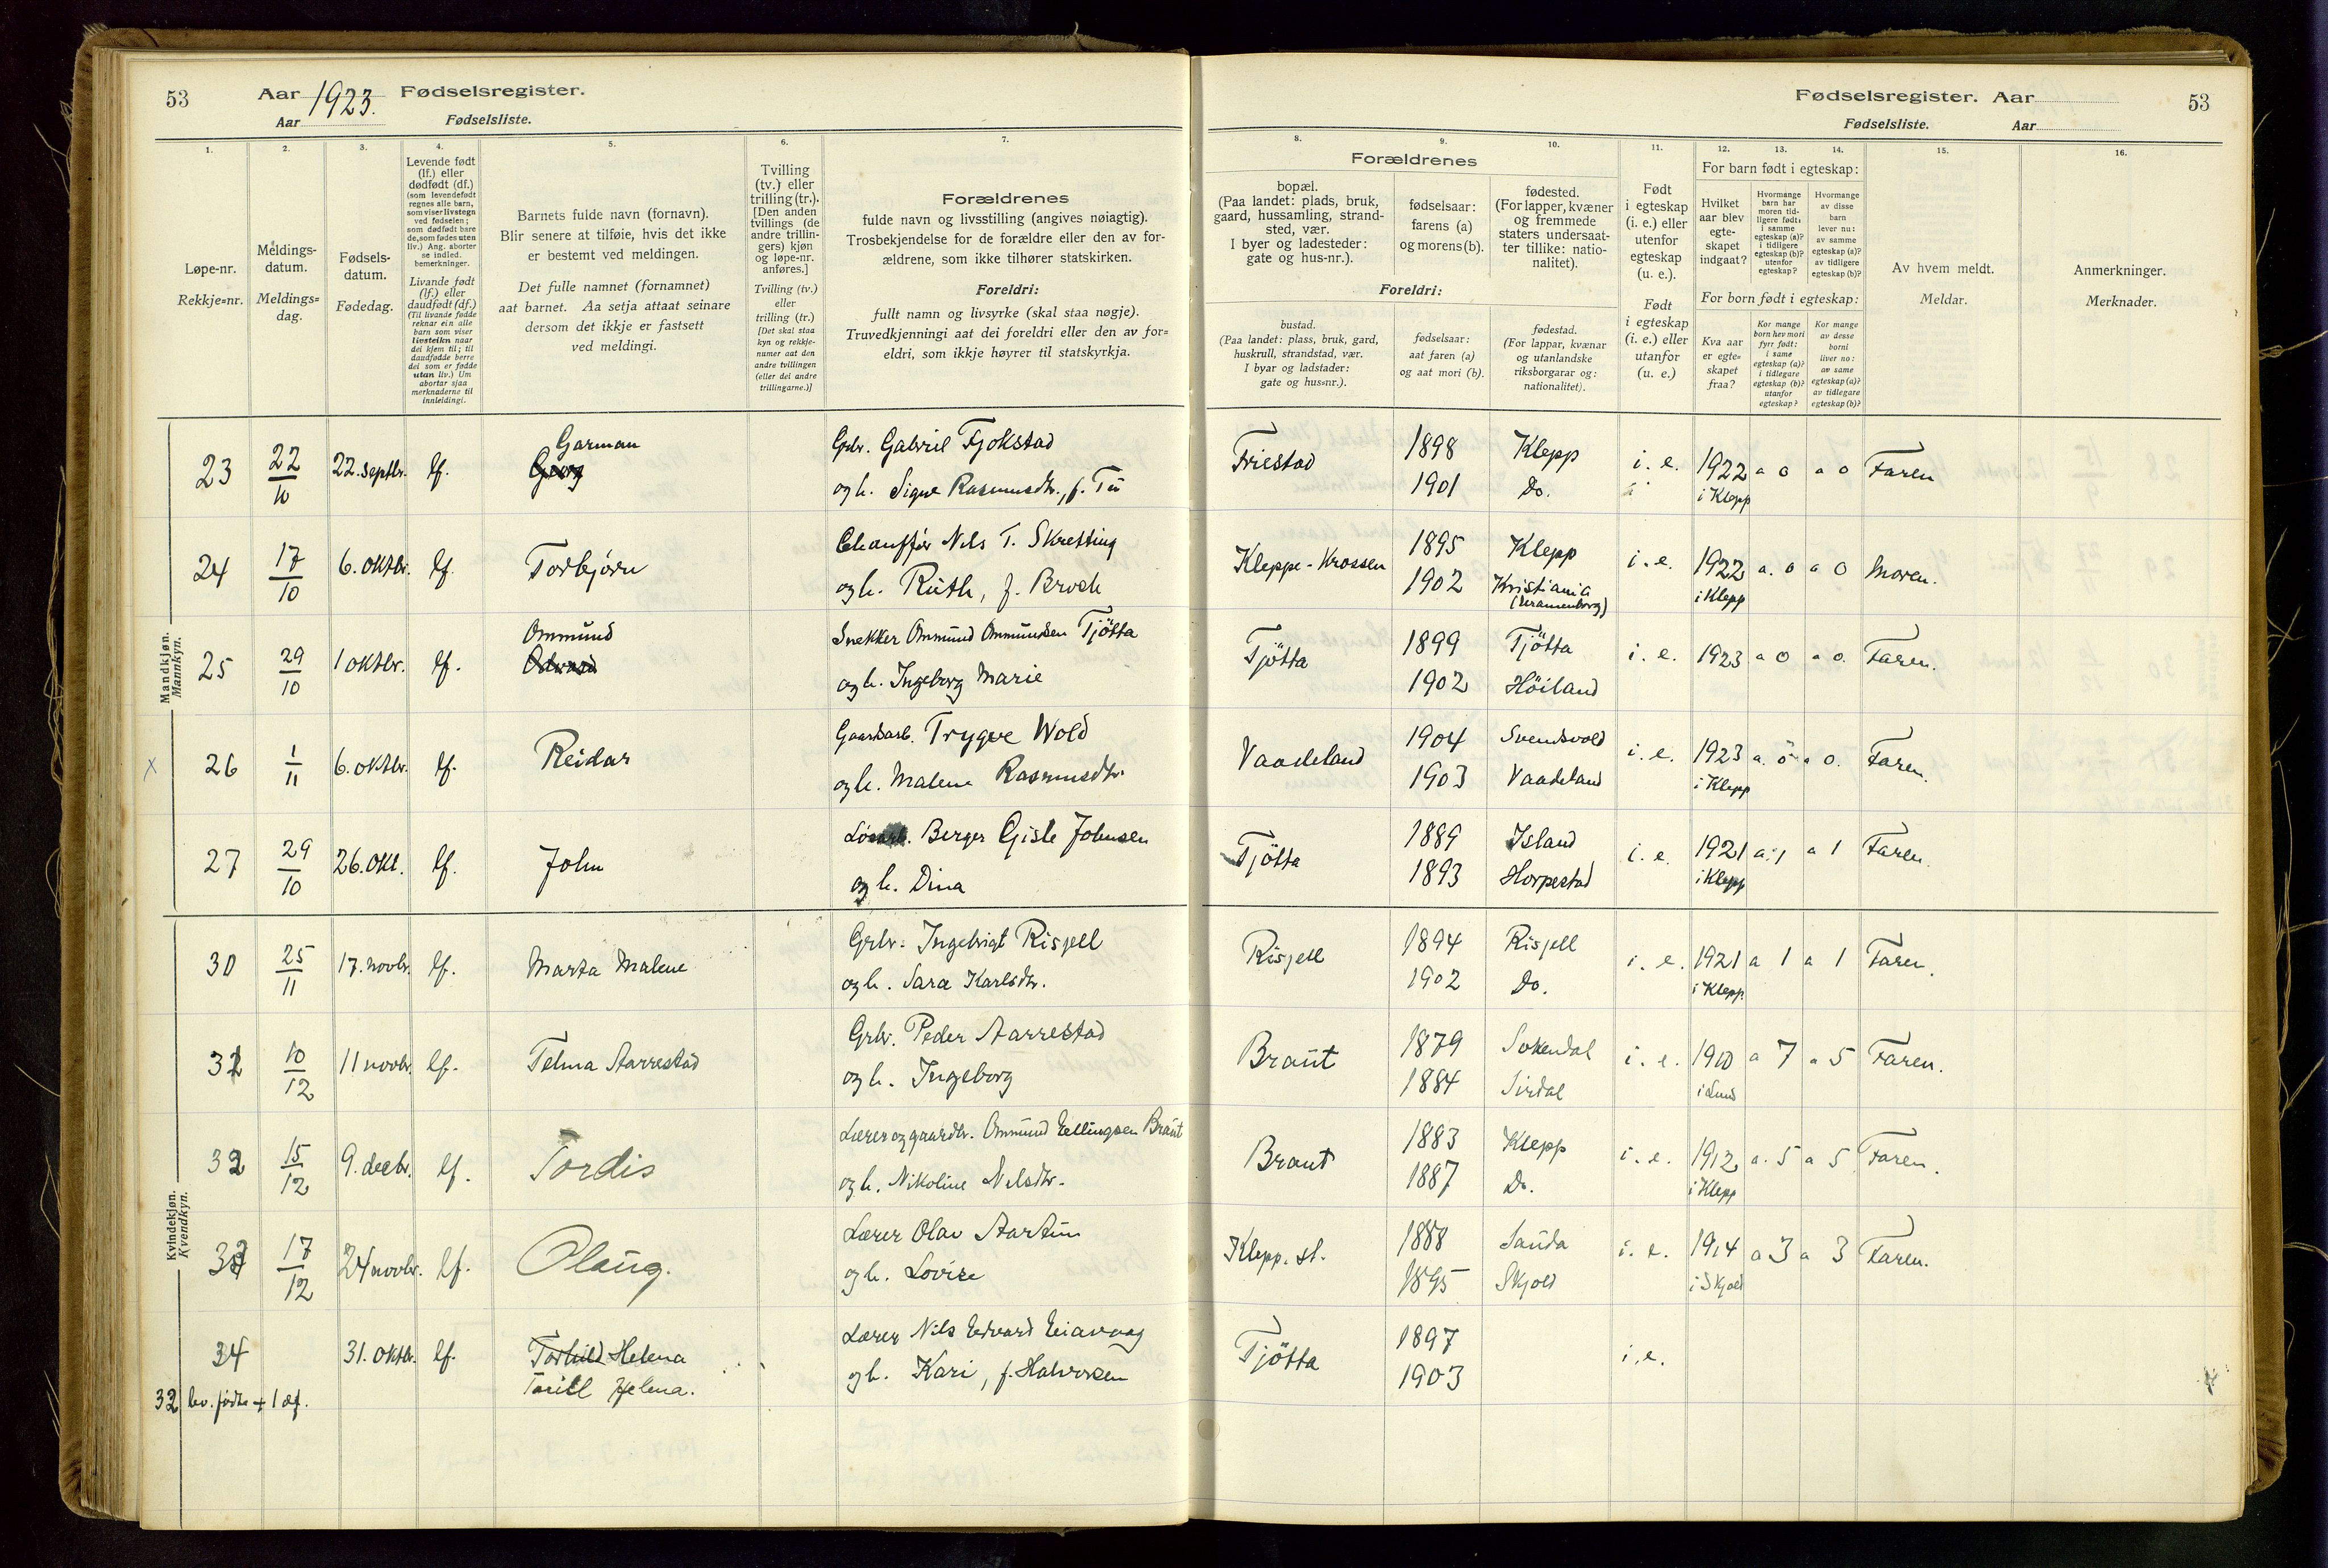 53 Aar 1923. Fødselsregister.
Aar Fødselsliste.
1. 2. 3. 4. 5. 6. 7.
Løpe-nr.
Rekkje=nr.
Meldings-
datum.
Meldings=
dag.
Fødsels-
datum.
Fødedag.
Levende født
(lf.) eller
dødfødt (df.)
(som levendefødt
regnes alle barn,
som viser livstegn
ved fødselen;
som dødfødt bare
de, som fødes uten
liv.) Ang. aborter
se indled.
bemerkninger.
Livande født
(lf.) eller
daudfødt (df.)
(Til livande fødde
reknar ein alle
barn som viser
livsteikn naar
dei kjem til; til
daudfødde berre
dei som er fødde
utan liv.) Um
abortar sjaa
merknaderne til
innleidingi.
Barnets fulde navn (fornavn).
Blir senere at tilføie, hvis det ikke
er bestemt ved meldingen.
Det fulle namnet (fornamnet)
aat barnet. Aa setja attaat seinare
dersom det ikkje er fastsett
ved meldingi.
Tvilling
(tv.) eller
trilling (tr.).
[Den anden
tvillings (de
andre trillin-
gers) kjøn
og løpe-nr.
anføres.]
Tvilling (tv.)
eller
trilling (tr.)
[Det skal staa
kyn og rekkje-
numer aat den
andre tvillingen
(eller dei andre
trillingarne.)]
Forældrenes
fulde navn og livsstilling (angives nøiagtig).
Trosbekjendelse for de forældre eller den av for-
ældrene, som ikke tilhører statskirken.
Foreldri:
fullt namn og livsyrke (skal staa nøgje).
Truvedkjenningi aat dei foreldri eller den av for=
eldri, som ikkje høyrer til statskyrkja.
Mandkjøn.
Mannkyn.
Garman
23 22/10 22. septbr. lf. Georg Grbr. Gabriel Fjokstad
og h. Signe Rasmusdtr., f. Tu
24 17/10 6. oktbr. lf. Torbjørn Chauffør Nils T. Skretting
og h. Ruth, f. Broch
Ommund
25 29/10 1 oktbr. lf. Edvard Snekker Ommund Ommundsen Tjötta
og h. Ingeborg Marie
x 26 1/11 6. oktbr. lf. Reidar Gaardarb. Trygve Wold
og h. Malene Rasmusdtr.
27 29/10 26. okt. lf. John Løsarb. Berger Gisle Johnsen
og h. Dina
Kvindekjøn.
Kvendkyn.
30 25/11 17. novbr. lf. Marta Malene Grbr. Ingebrigt Risjell
og h. Sara Karlsdtr.
31 10/12 11 novbr. lf. Telma Aarrestad Grbr. Peder Aarrestad
og h. Ingeborg
32 15/12 9. decbr. lf. Tordis Lærer og gaardbr. Ommund Eellingsen Braut
og h. Nikoline Nilsdtr.
33 17/12 24 novbr. lf. Olaug. Lærer Olav Aartun
og h. Lovise
34 31. oktbr. lf. Torhild Helena Lærer Nils Edvard Eiavaag
Torill Helena. og h. Kari, f. Halvorsen
32 lev. fødte + 1 df.
Fødselsregister. Aar 53
Fødselsliste. Aar
8. 9. 10. 11. 12. 13. 14. 15. 16.
Forældrenes
bopæl.
(Paa landet: plads, bruk,
gaard, hussamling, strand-
sted, vær.
I byer og ladesteder:
gate og hus-nr.).
fødselsaar:
farens (a)
og morens (b).
fødested.
(For lapper, kvæner
og fremmede
staters undersaat-
ter tillike: natio-
nalitet).
Foreldri:
bustad.
(Paa landet: plass, bruk, gard,
huskrull, strandstad, vær.
I byar og ladstader:
gate og hus=nr.).
fødselsaar:
aat faren (a)
og aat mori (b).
fødestad.
(For lappar, kvænar
og utanlandske
riksborgarar og:
nationalitet).
Født
i egteskap
(i. e.) eller
utenfor
egteskap
(u. e.).
Født
i egteskap
(i. e.) eller
utanfor
(u. e.)
For barn født i egteskap:
Hvilket
aar blev
egte-
skapet
indgaat?
Hvormange
barn har
moren tid-
ligere født:
i samme
egteskap (a)?
i tidligere
egteskap (b)?
utenfor
egteskap?
Hvormange
av disse
barn
lever nu:
av samme
egteskap (a)?
av tidligere
egteskap (b)?
For born født i egteskap:
Kva aar
er egte=
skapet
fraa?
Kor mange
born hev mori
fyrr født:
i same
egteskap (a)?
i tidlegare
egteskap (b)?
utanfor
egteskap?
Kor mange
av desse
borni
liver no:
av same
egteskap (a)?
av tidlegare
egteskap (b)?
Av hvem meldt.
Meldar.
Anmerkninger.
Merknader.
Friestad 1898 Klepp i. e. 1922 a 0 a 0 Faren
1901 Do. i Klepp
Kleppe-Krossen 1895 Klepp i. e. 1922 a. 0 a 0 Moren.
1902 Kristiania i Klepp
Tjötta 1899 Tjötta i. e. 1923 a 0 a 0. Faren.
1902 Höiland
Vaadeland 1904 Svendsvold i. e. 1923 a. 0 a 0. Faren.
1903 Vaadeland i Klepp
Tjötta 1889 Island i. e. 1921 a. 1 a 1 Faren.
1893 Horpestad i Klepp
Risjell 1894 Risjell i. e. 1921 a 1 a 1 Faren.
1902 Do. i Klepp
Braut 1879 Sokndal i. e. 1910 a 7 a 5 Faren.
1884 Sirdal i Lund
Braut 1883 Klepp i. e. 1912 a. 5 a 5 Faren.
1887 Do. i Klepp
Klepp. st. 1888 Sauda i. e. 1914 a 3 a 3 Faren.
1895 Skjold i Skjold
Tjötta 1897 i. e.
1903